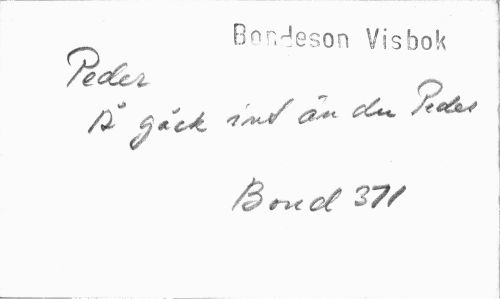 Bondeson Visbok
Peder
Å gåck int än du Peder
Bond 371